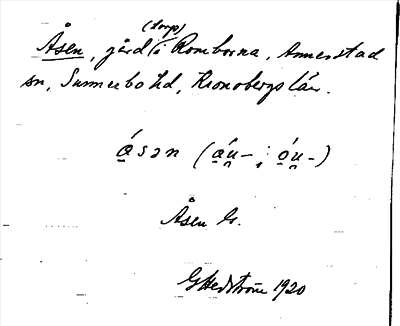 (torp)
Åsen, gård i Romborna, Annerstad
sn, Sunnerbo hd, Kronobergs län.
ásən (áu- ; óu-)
Åsen G.
G Hedström 1920